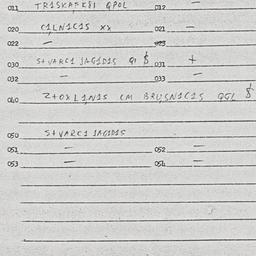 011 TRISKAFKSI GPOL 012 –
020 CILNICIS xx 021 –
022 – 023
030 STVARCI JAGIDIS GI $ 031 +
032 – 033 –
040 ZTOXLINIS CM BRUSNICIS GGL $
050 STVARCI JAGIDIS
051 – 052 –
053 – 054 –